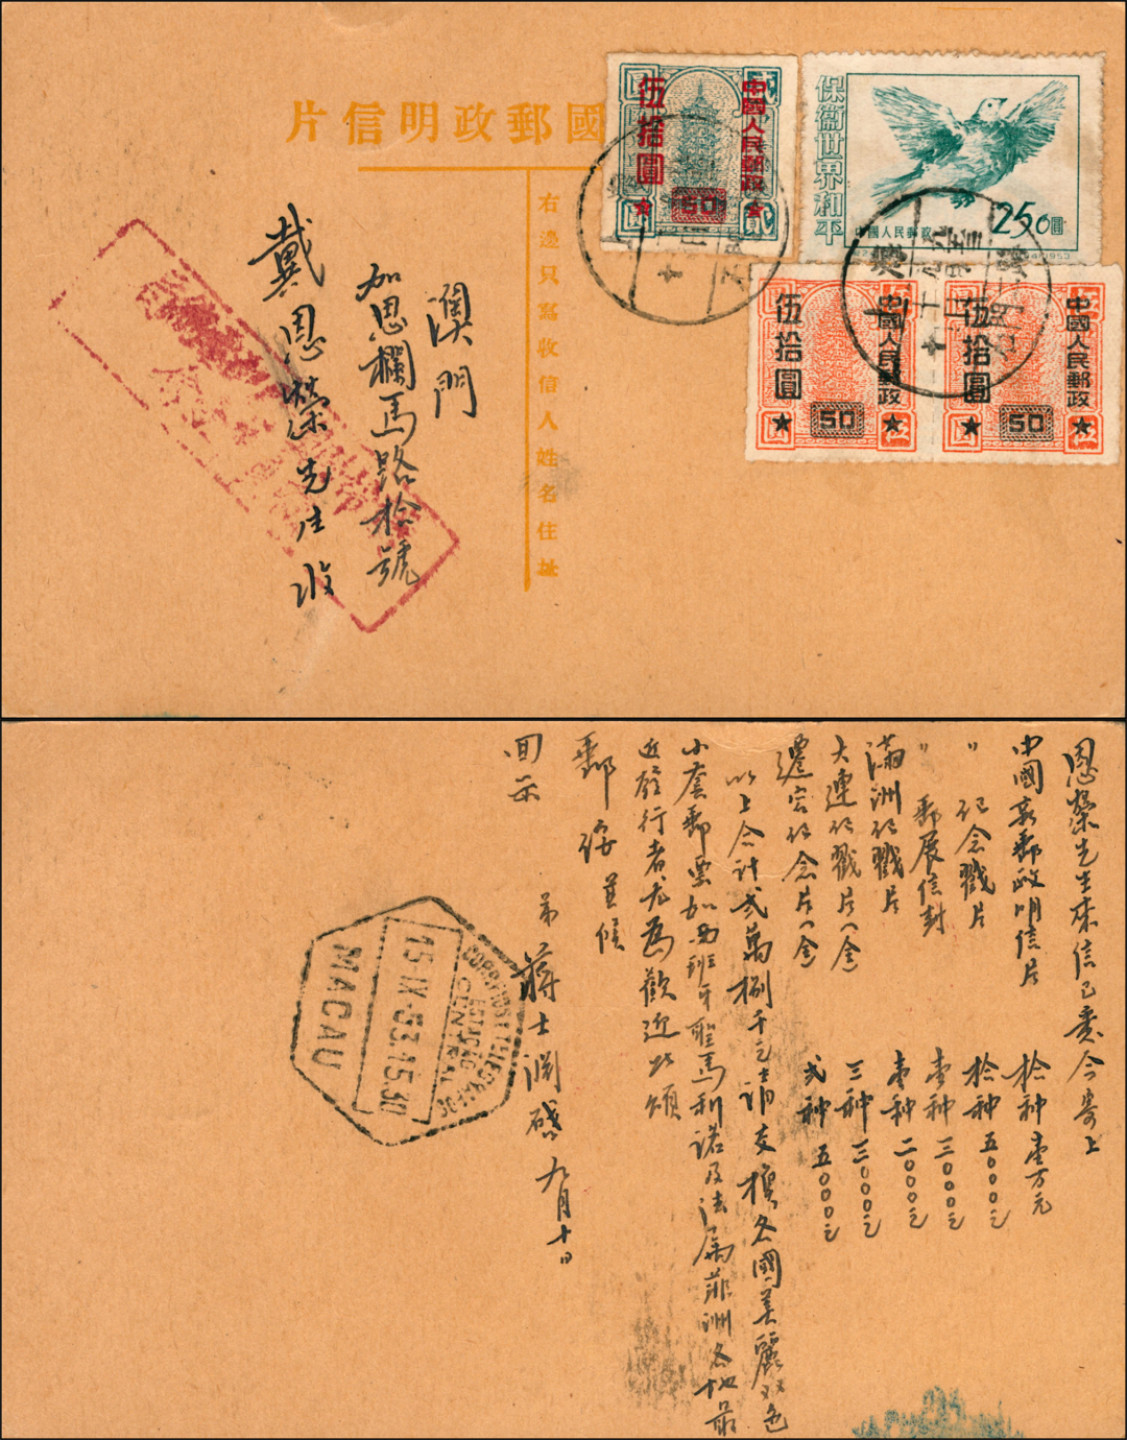 國郵政明信片
右邊只寫收信人姓名住址
中國人民郵政
伍拾圓
50
保衛世界和平
中國人民郵政
250圓
中國人民郵政
伍拾圓
50
中國人民郵政
伍拾圓
50
澳門
加思欄馬路拾號
戴恩榮先生收
恩榮先生來信已悉今寄上
中國郵政明信片 拾种 壹万元
〃 紀念戳片 拾种 五000元
〃 郵展信封 壹种 三000元
滿洲紀戳片 壹种 二000元
大連紀戳片(全) 三种 三000元
遷宮紀念片(全) 弍种 五000元
以上合計弍萬捌千元請交換各國美麗双色
小套郵票如西班牙聖馬利諾及法屬菲洲各地最
近發行者尤為歡迎此頌
郵
回示
弟蔣士淵啟 九月十日
CORREIOS E TELEGRAFOS
ESTAÇÃO
CENTRAL
15-IX-53.15.30
MACAU